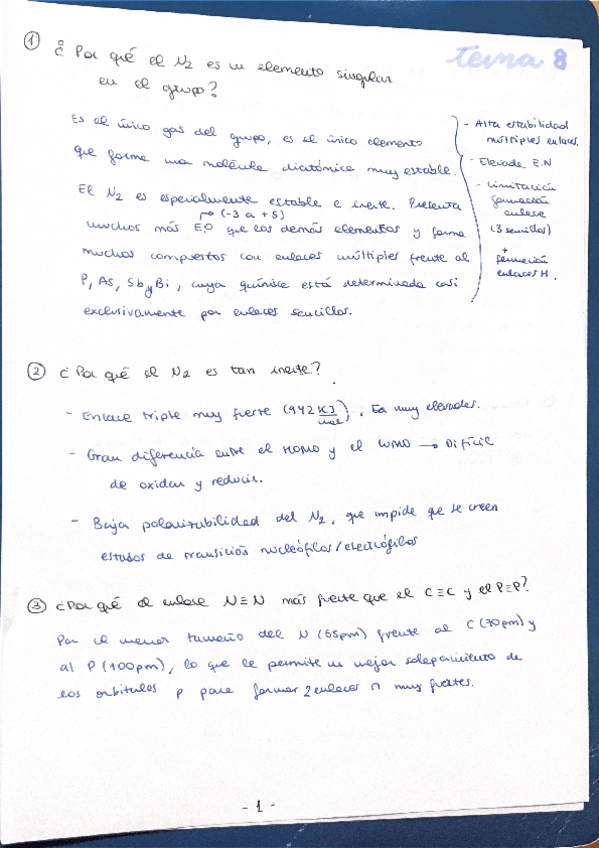 tema 8
① ¿Por qué el N2 es un elemento singular
en el grupo?
Es el único gas del grupo, es el único elemento
que forma una molécula diatómica muy estable.
El N2 es especialmente estable e inerte. Presenta
(-3 a +5)
muchos más E.O que los demás elementos y forma
muchos compuestos con enlaces múltiples frente al
P, As, Sb y Bi, cuya química está determinada casi
exclusivamente por enlaces sencillos.
- Alta estabilidad
múltiples enlaces.
- Elevada E.N
- Limitación
formación
enlace
(3 sencillos)
+
formación
enlaces H.
② ¿Por qué el N2 es tan inerte?
- Enlace triple muy fuerte (942 KJ/mol), Ea muy elevadas.
- Gran diferencia entre el HOMO y el LUMO → Difícil
de oxidar y reducir.
- Baja polarizabilidad del N2, que impide que se creen
estados de transición nucleófilos/electrófilos
③ ¿Por qué el enlace N≡N más fuerte que el C≡C y el P≡P?
Por el menor tamaño del N (65pm) frente al C (70pm) y
al P (100pm), lo que le permite un mejor solapamiento de
los orbitales p para formar 2 enlaces π muy fuertes.
- 1 -